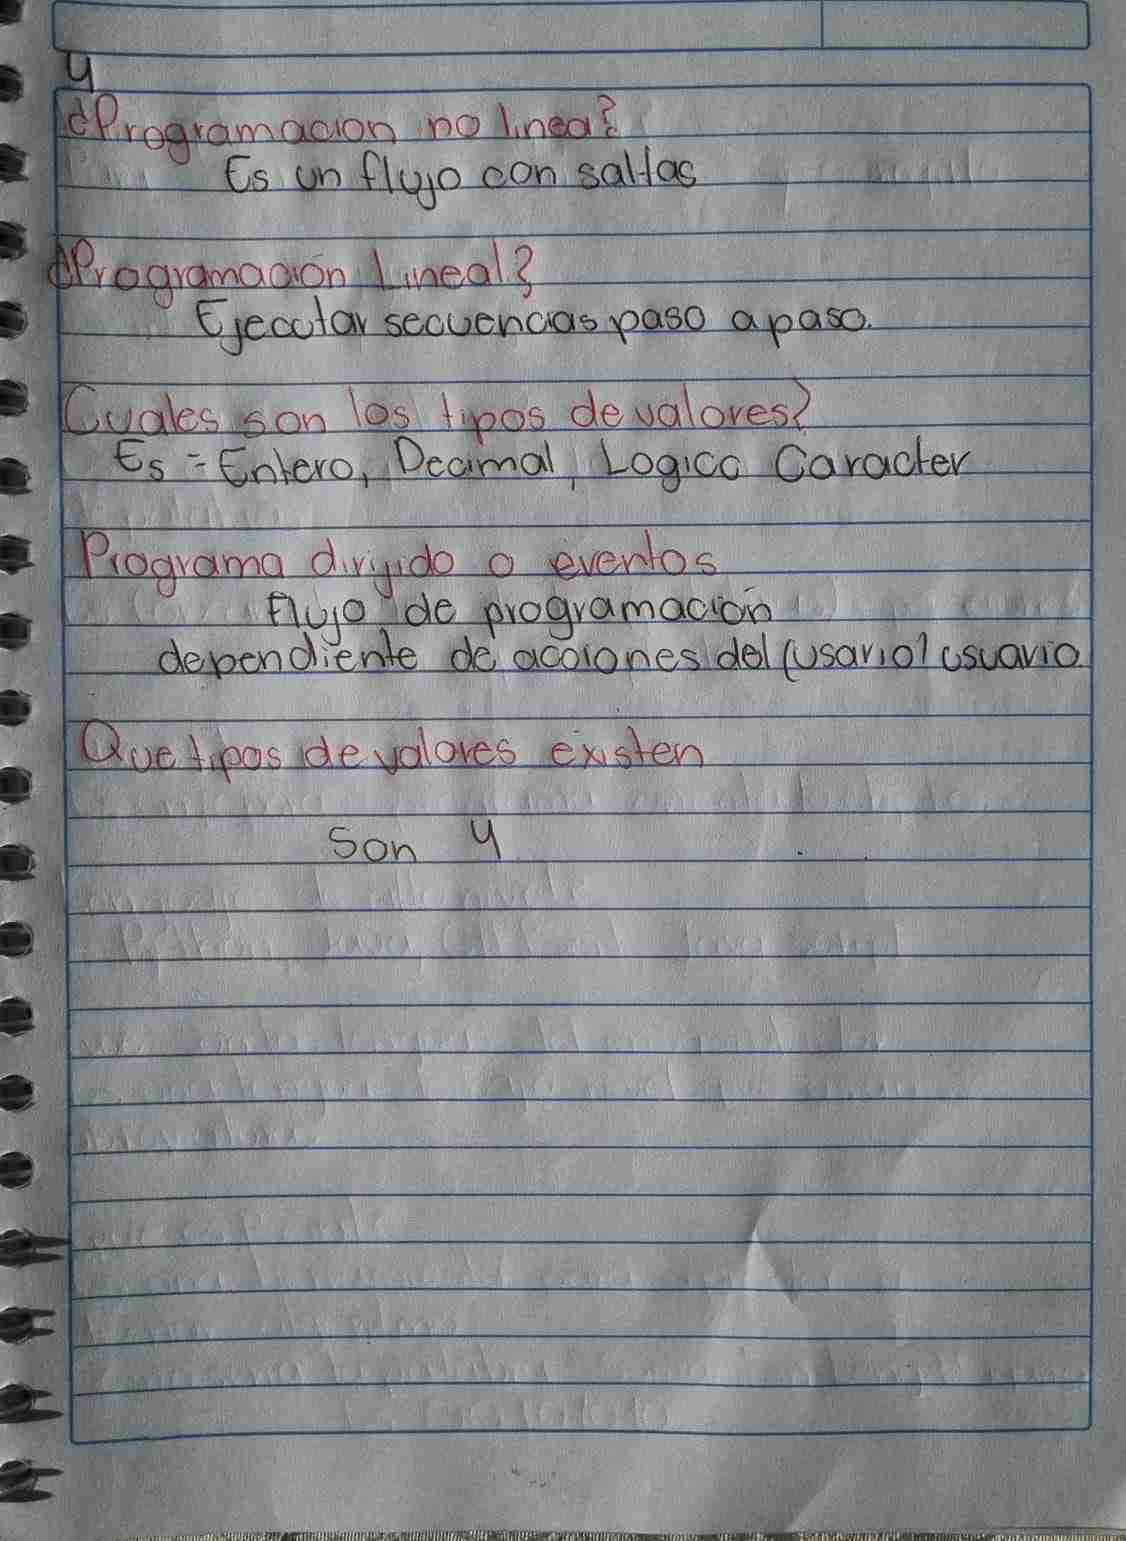 4
¿Programacion no linea?
Es un flujo con saltas
¿Programación Lineal?
Ejecutar secuencias paso a paso.
Cuales son los tipos de valores?
Es = Entero, Decimal, Logico Caracter
Programa dirijido o eventos
flujo de programación
dependiente de acciones del (usario) usuario.
Que tipos de valores existen
Son 4